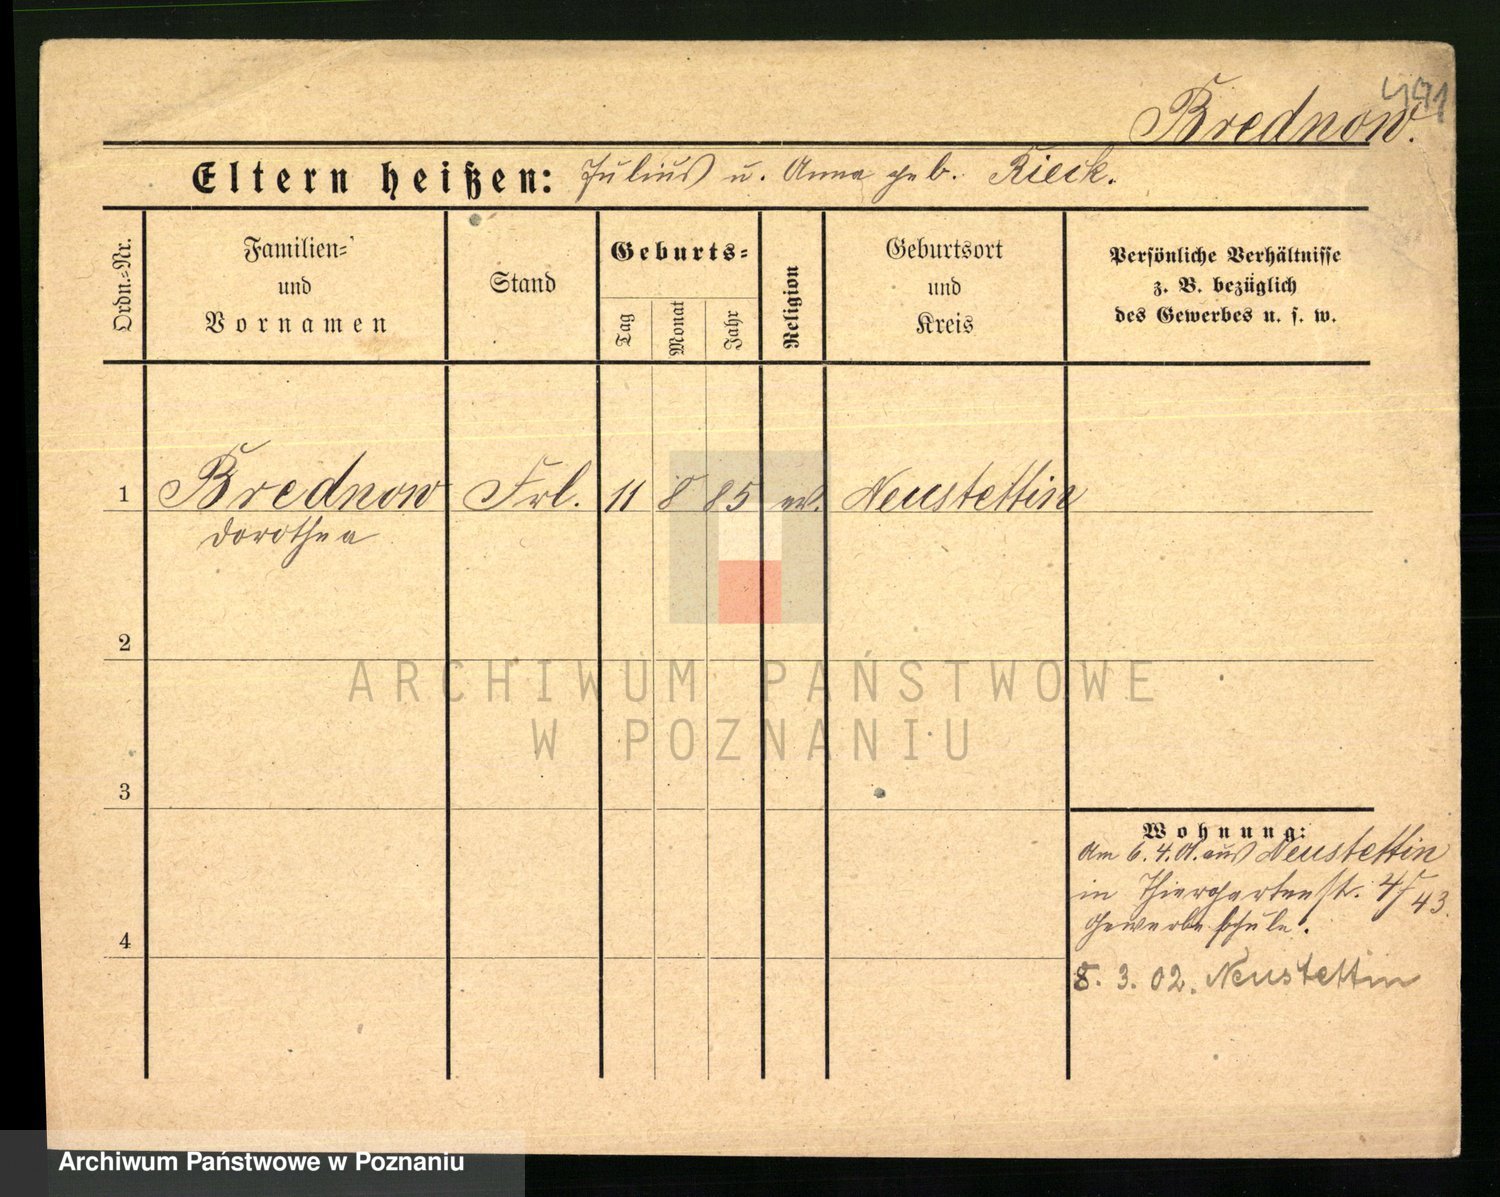 491
Brednow.
Eltern heißen: Julius u. Anna geb. Rieck.
Ordn.=Nr.
Familien=
und
Vornamen
Stand
Geburts=
Tag
Monat
Jahr
Religion
Geburtsort
und
Kreis
Persönliche Verhältnisse
z. B. bezüglich
des Gewerbes u. s. w.
1 Brednow Frl. 11 8 85 ev. Neustettin
Dorothea
2
3
4
Wohnung:
Am 6.4.01. aus Neustettin
in Thiergartenstr. 43.
Gewerbeschule.
8. 3. 02. Neustettin
ARCHIWUM PAŃSTWOWE
W POZNANIU
Archiwum Państwowe w Poznaniu